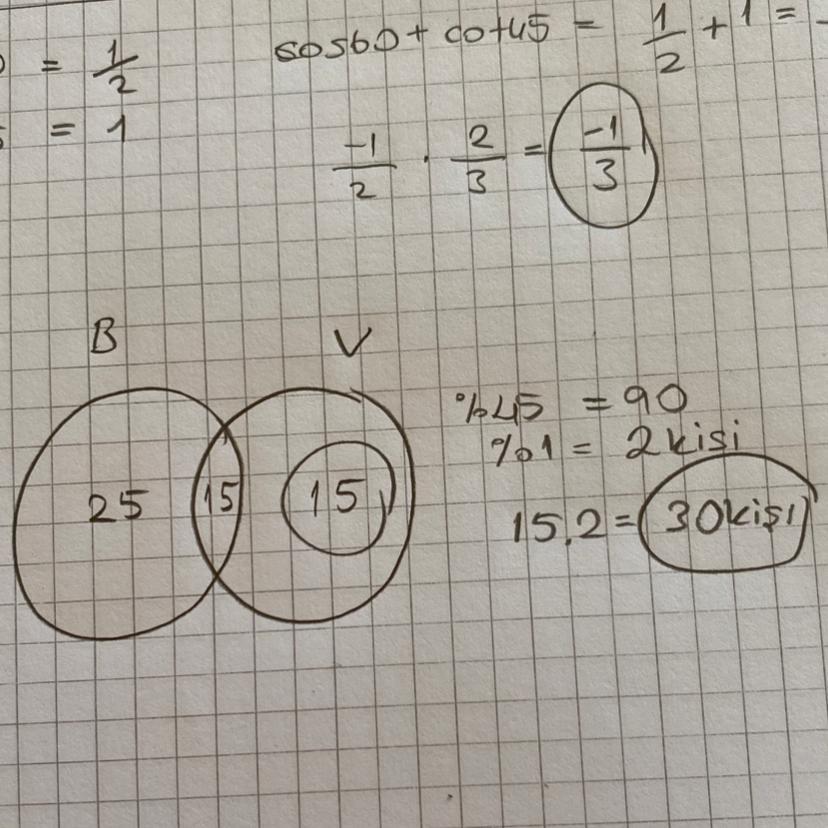 0 = 1/2
cos60 + cot45 = 1/2 + 1 =
= 1
-1/2 . 2/3 = -1/3
B V
25 15 15
%45 = 90
%1 = 2 kişi
15.2 = 30 kişi